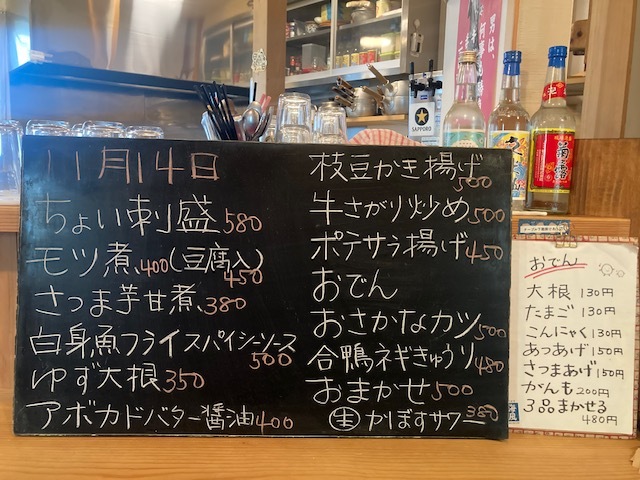 11月14日
ちょい刺盛 580
モツ煮、400(豆腐入)450
さつま芋甘煮、380
白身魚フライスパイシーソース 500
ゆず大根 350
アボカドバター醤油 400
枝豆かき揚げ 500
牛さがり炒め 500
ポテサラ揚げ 450
おでん
おさかなカツ 500
合鴨ネギきゅうり 480
おまかせ 500
生 かぼすサワー 380
おでん
大根 130円
たまご 130円
こんにゃく 130円
あつあげ 150円
さつまあげ 150円
がんも 200円
3品まかせる
480円
SAPPORO
男は、